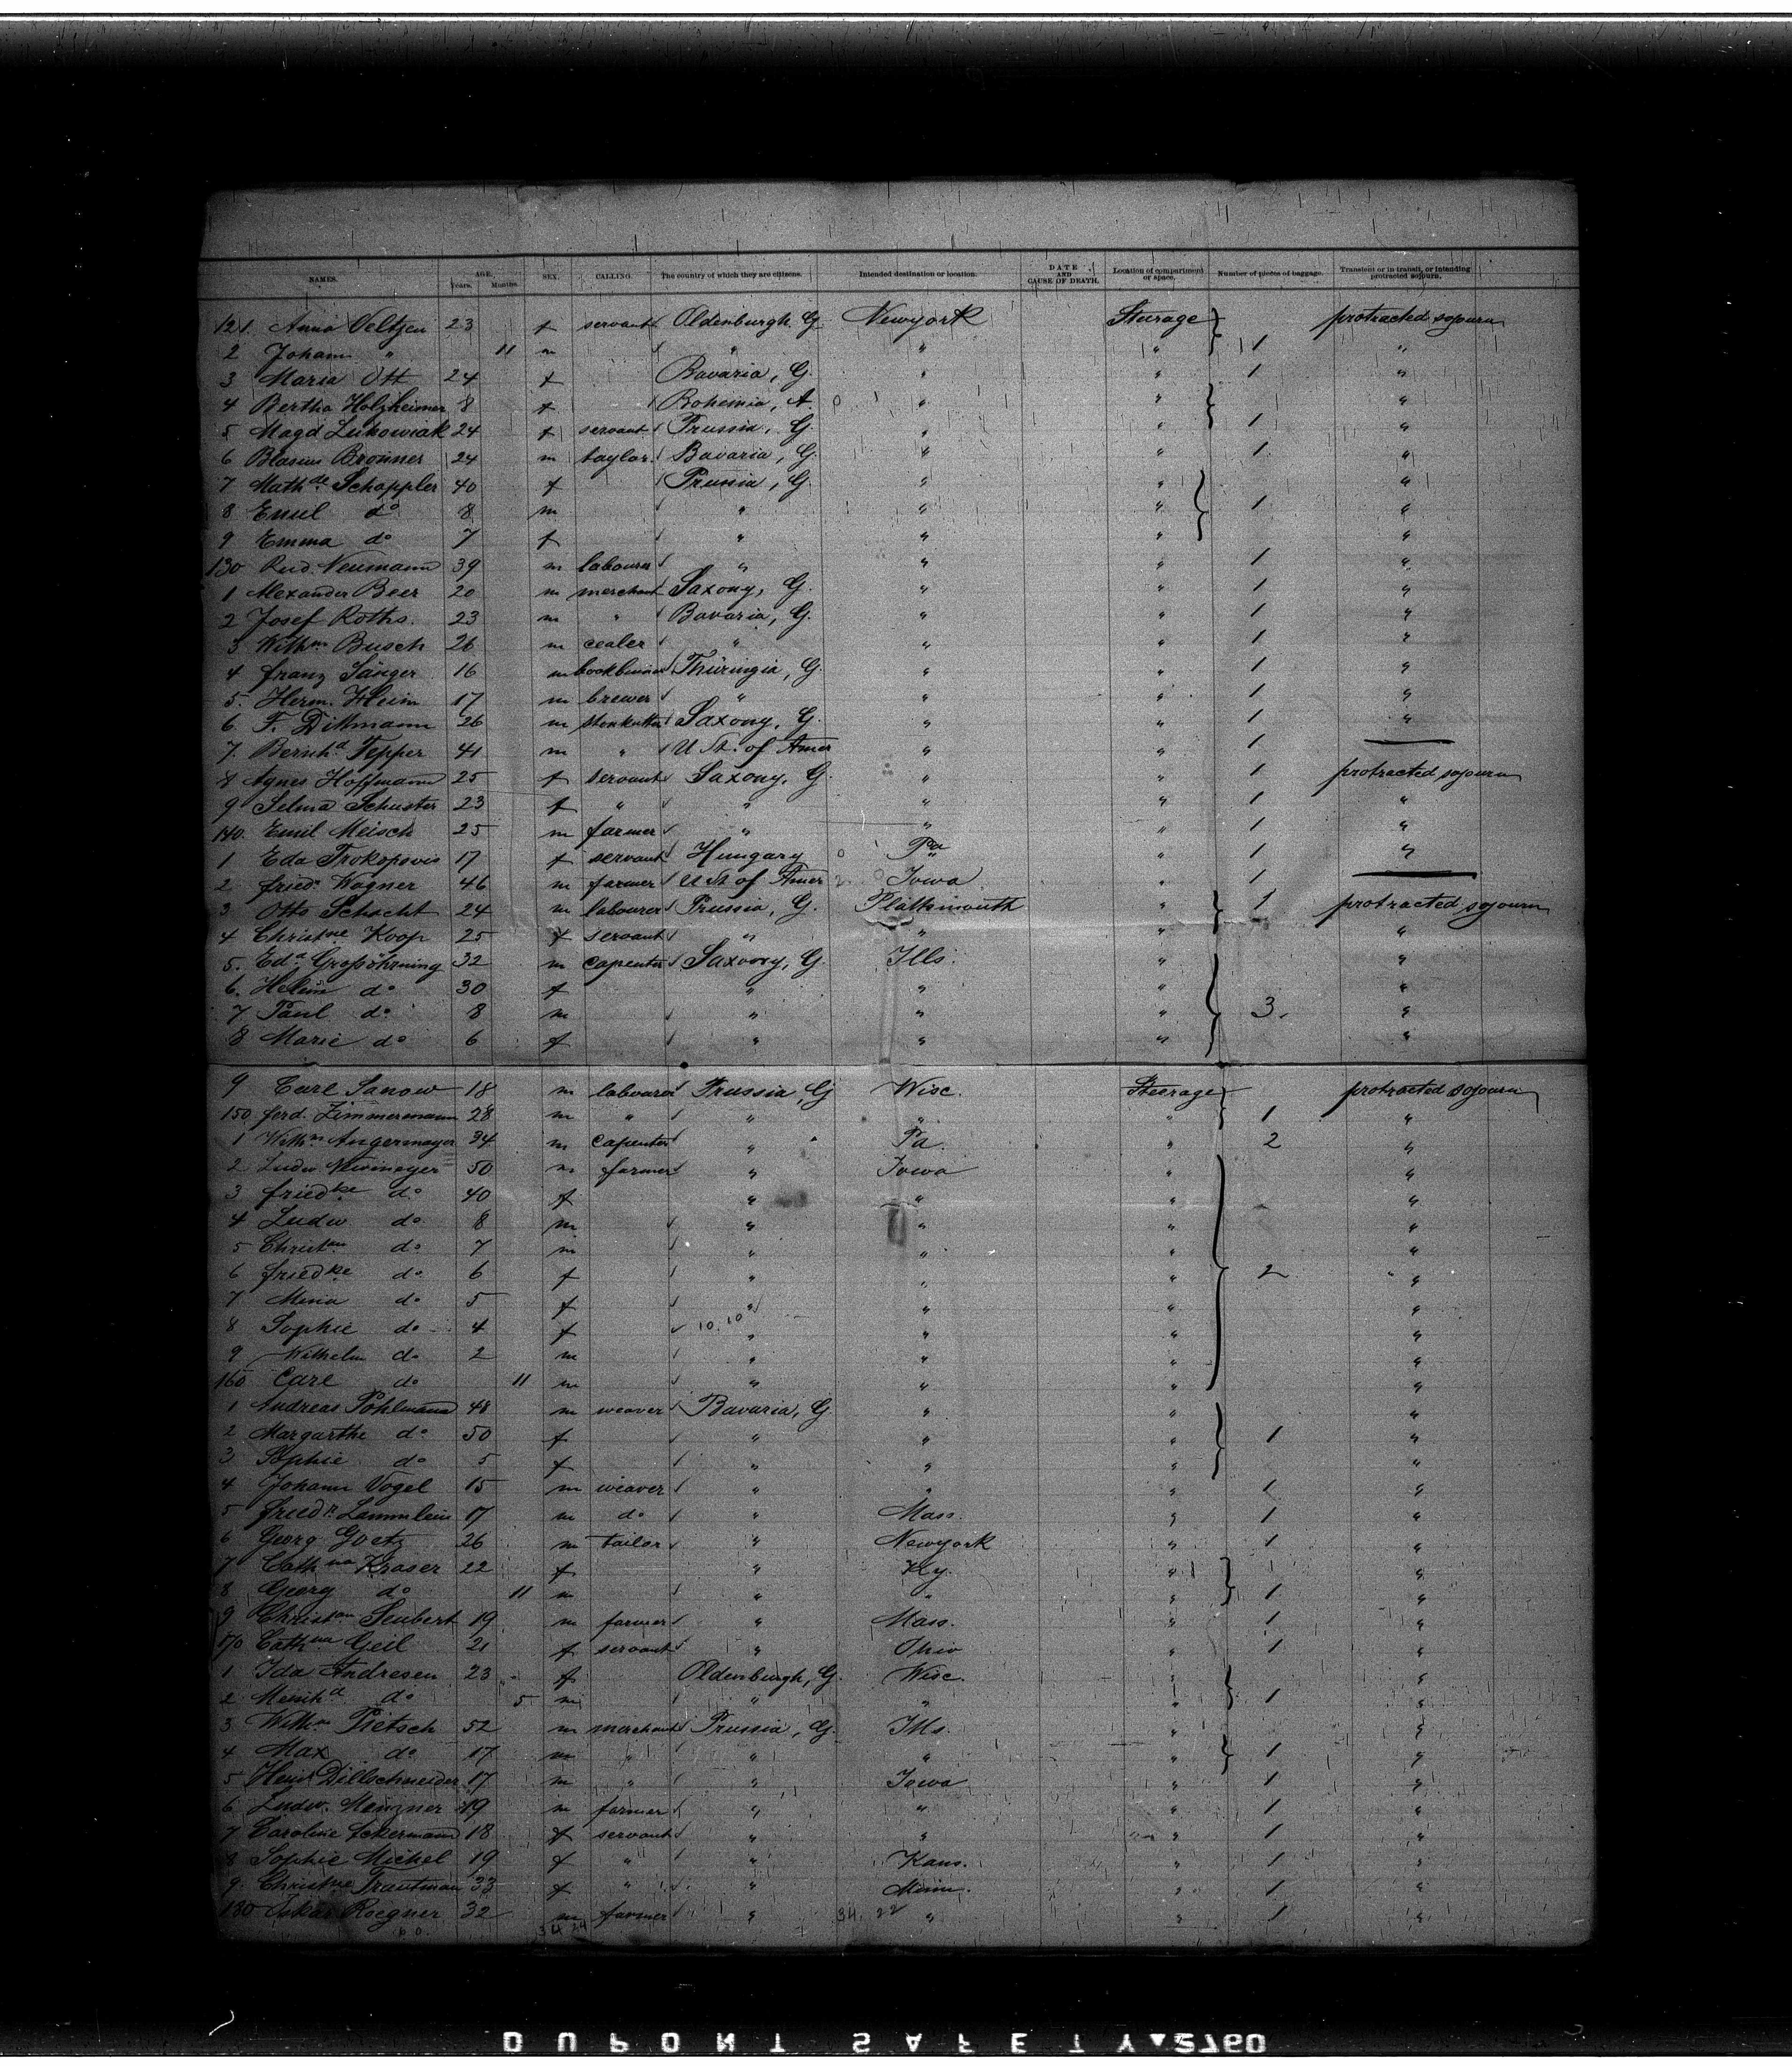 NAMES. AGE. Years. Months. SEX. CALLING. The country of which they are citizens. Intended destination or location. DATE AND CAUSE OF DEATH. Location of compartment or space. Number of pieces of baggage. Transient or in transit, or intending protracted sojourn.
121. Anna Oeltzen 23 f servant Oldenburgh. G Newyork Steerage protracted sojourn
2 Johann " 11 m " " " 1 "
3 Maria Ott 24 f Bavaria, G. " " 1 "
4 Bertha Holzheimer 8 f Bohemia, A. " " "
5 Magd 24 f servant Prussia, G. " " 1 "
6 Blasius Bronner 24 m taylor. Bavaria, G. " " 1 "
7 Math de Schappler 40 f Prussia, G. " " "
8 Emil do 8 m " " " 1 "
9 Emma do 7 f " " " "
130 Rud. Neumann 39 m labourer " " " 1 "
1 Alexander Beer 20 m merchant Saxony, G. " " 1 "
2 Josef Roths. 23 m " Bavaria, G. " " 1 "
3 Wilh m Busch 26 m cealer " " " 1 "
4 Franz Sänger 16 m Thüringia, G. " " 1 "
5. Herm. Heim 17 m brewer " " " 1 "
6 F. Dittmann 26 m Saxony, G. " " 1 "
7. Bernh d Tepper 41 m " U St. of Amer " " 1
8 Agnes Hoffmann 25 f servant Saxony, G. " " 1 protracted sojourn
9 Selma Schuster 23 f " " " " 1 "
140. Emil Meisch 25 m farmer " " " 1 "
1 Eda Prokopovis 17 f servant Hungary Pa " 1 "
2 Fried. Wagner 46 m farmer U St of Amer Iowa " 1
3 Otto Schacht 24 m labourer Prussia, G. Plattsmouth " 1 protracted sojourn
4 Christ ne Koop 25 f servant " " " "
5. Ed d Großöhrning 32 m capenter Saxony, G. Ills. " "
6. Helen do 30 f " " " "
7 Paul do 8 m " " " 3. "
8 Marie do 6 f " " " "
9 Carl Sanow 18 m labourer Prussia, G Wisc. Steerage protracted sojourn
150 Ferd. Zimmermann 28 m " " " " 1 "
1 Wilh m Angermayer 34 m capenter " Pa. " 2 "
2 Ludw Niemeyer 50 m farmer " Iowa " "
3 Fried ke do 40 f " " " "
4 Ludw do 8 m " " " "
5 Christ an do 7 m " " " "
6 Fried ke do 6 f " " " 2 "
7 Mina do 5 f " " " "
8 Sophie do 4 f 10.10 " " " "
9 Wilhelm do 2 m " " " "
160 Carl do 11 m " " " "
1 Andreas Pöhlmann 48 m weaver Bavaria, G. " " "
2 Margarthe do 50 f " " " 1 "
3 Sophie do 5 f " " " "
4 Johann Vogel 15 m weaver " " " 1 "
5 Fried r. Lammlein 17 m do " Mass. " 1 "
6 Georg Goetz 26 m tailor " Newyork " 1 "
7 Cath na Kraser 22 f " Ky. " "
8 Georg do 11 m " " " 1 "
9 Christ an Seubert 19 m farmer " Mass. " 1 "
170 Cath na Geil 21 f servant " Ohio " 1 "
1 Ida Andresen 23 f Oldenburgh, G. Wisc. " "
2 do 5 m " " " 1 "
3 Wilh m Pietsch 52 m merchant Prussia, G. Ills. " "
4 Max do 17 m " " " " 1 "
5 Heinr Dillschneider 17 m " " Iowa " 1 "
6 Ludw. Menzner 19 m farmer " " " 1 "
7 Caroline Ackermann 18 f servant " " " 1 "
8 Sophie Michel 19 f " " Kans. " 1 "
9. Christ ne Trautman 33 f " " Minn. " 1 "
180 Oskar Roegner 32 m farmer " " " 1 "
60. 34 24 34. 22
DUPONT SAFETY 2760